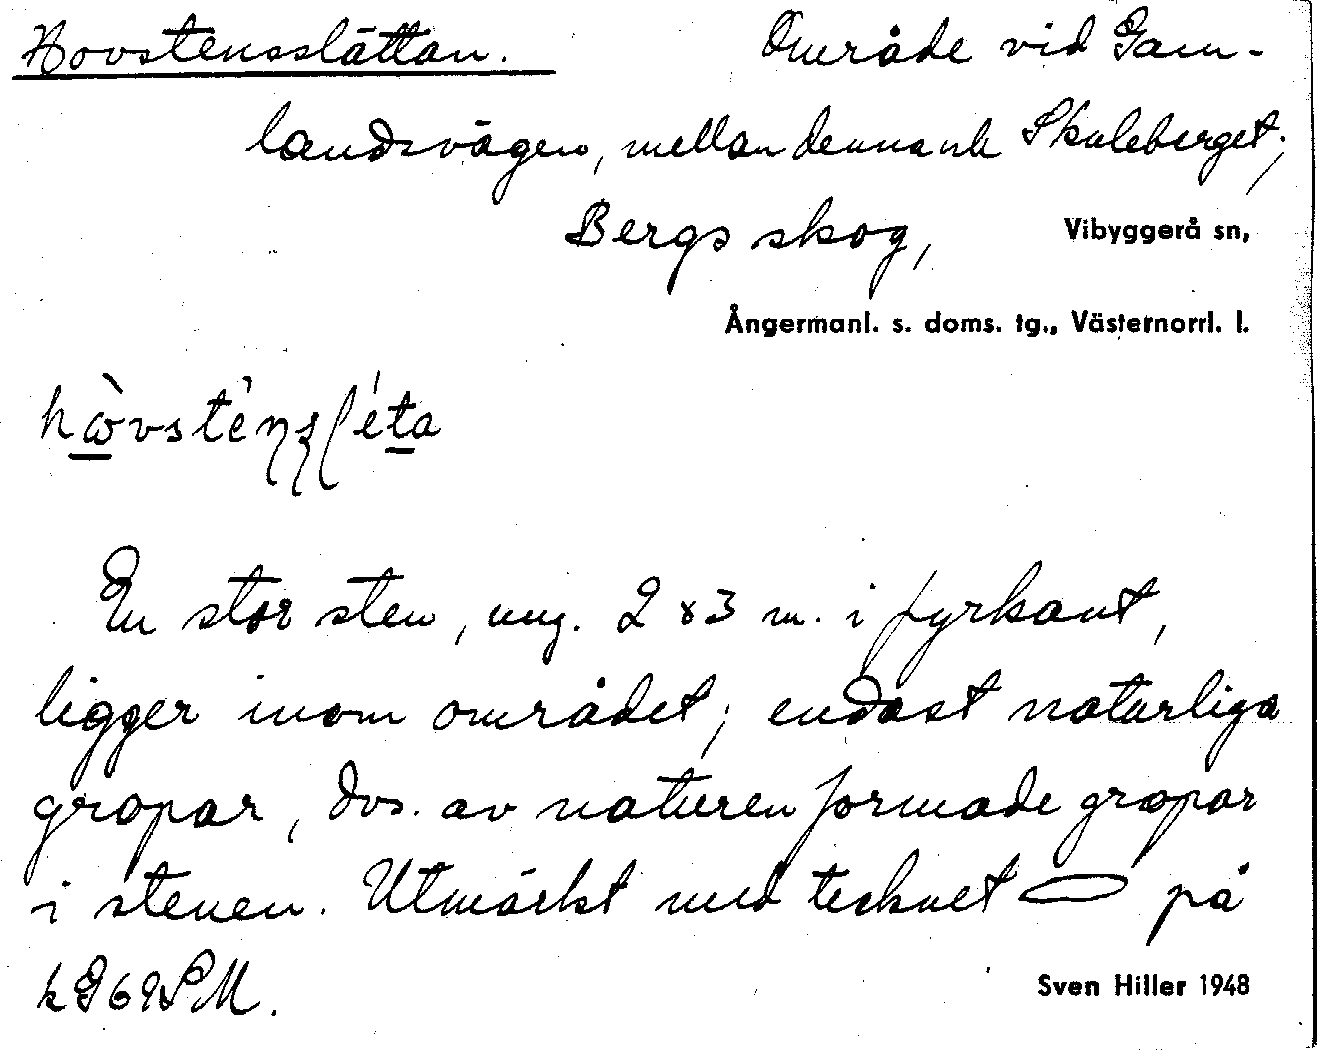 Hovstensslåttan. Område vid Gam-
landsvägen, mellan denna och Skuleberget;
Bergs skog, Vibyggerå sn,
Ångermanl. s. doms. tg., Västernorrl. l.
En stor sten, ung. 2 x 3 m. i fyrkant,
ligger inom området; endast naturliga
gropar, dvs. av naturen formade gropar
i stenen. Utmärkt med tecknet på
Sven Hiller 1948